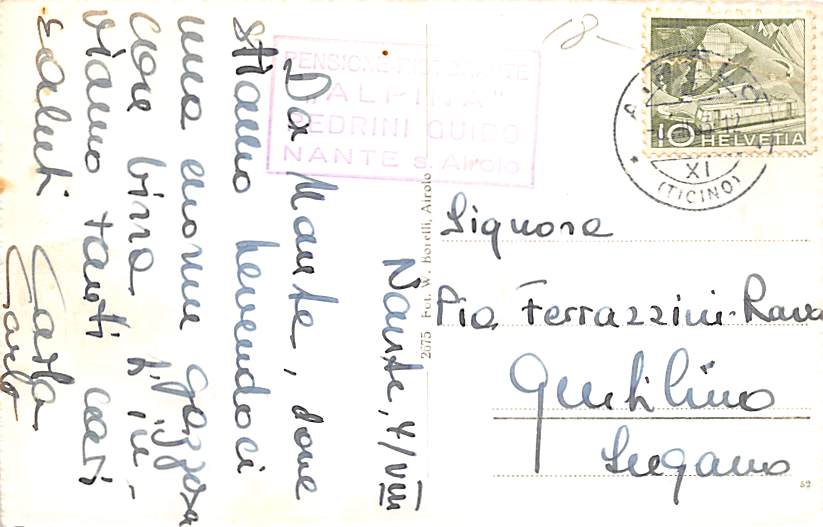 Nante, 4/VIII
Da Nante, dove
stiamo bevendoci
una enorme gazzosa
con birra, ti in-
viamo tanti cari
saluti
Carla
Carlo
PENSIONE RISTORANTE
"ALPINA"
PEDRINI GUIDO
NANTE s. Airolo
2675 Fot. W. Borelli, Airolo
18-
10 HELVETIA
XI
(TICINO)
Signora
Pia Ferrazzini-Rava
Gentilino
Lugano
52